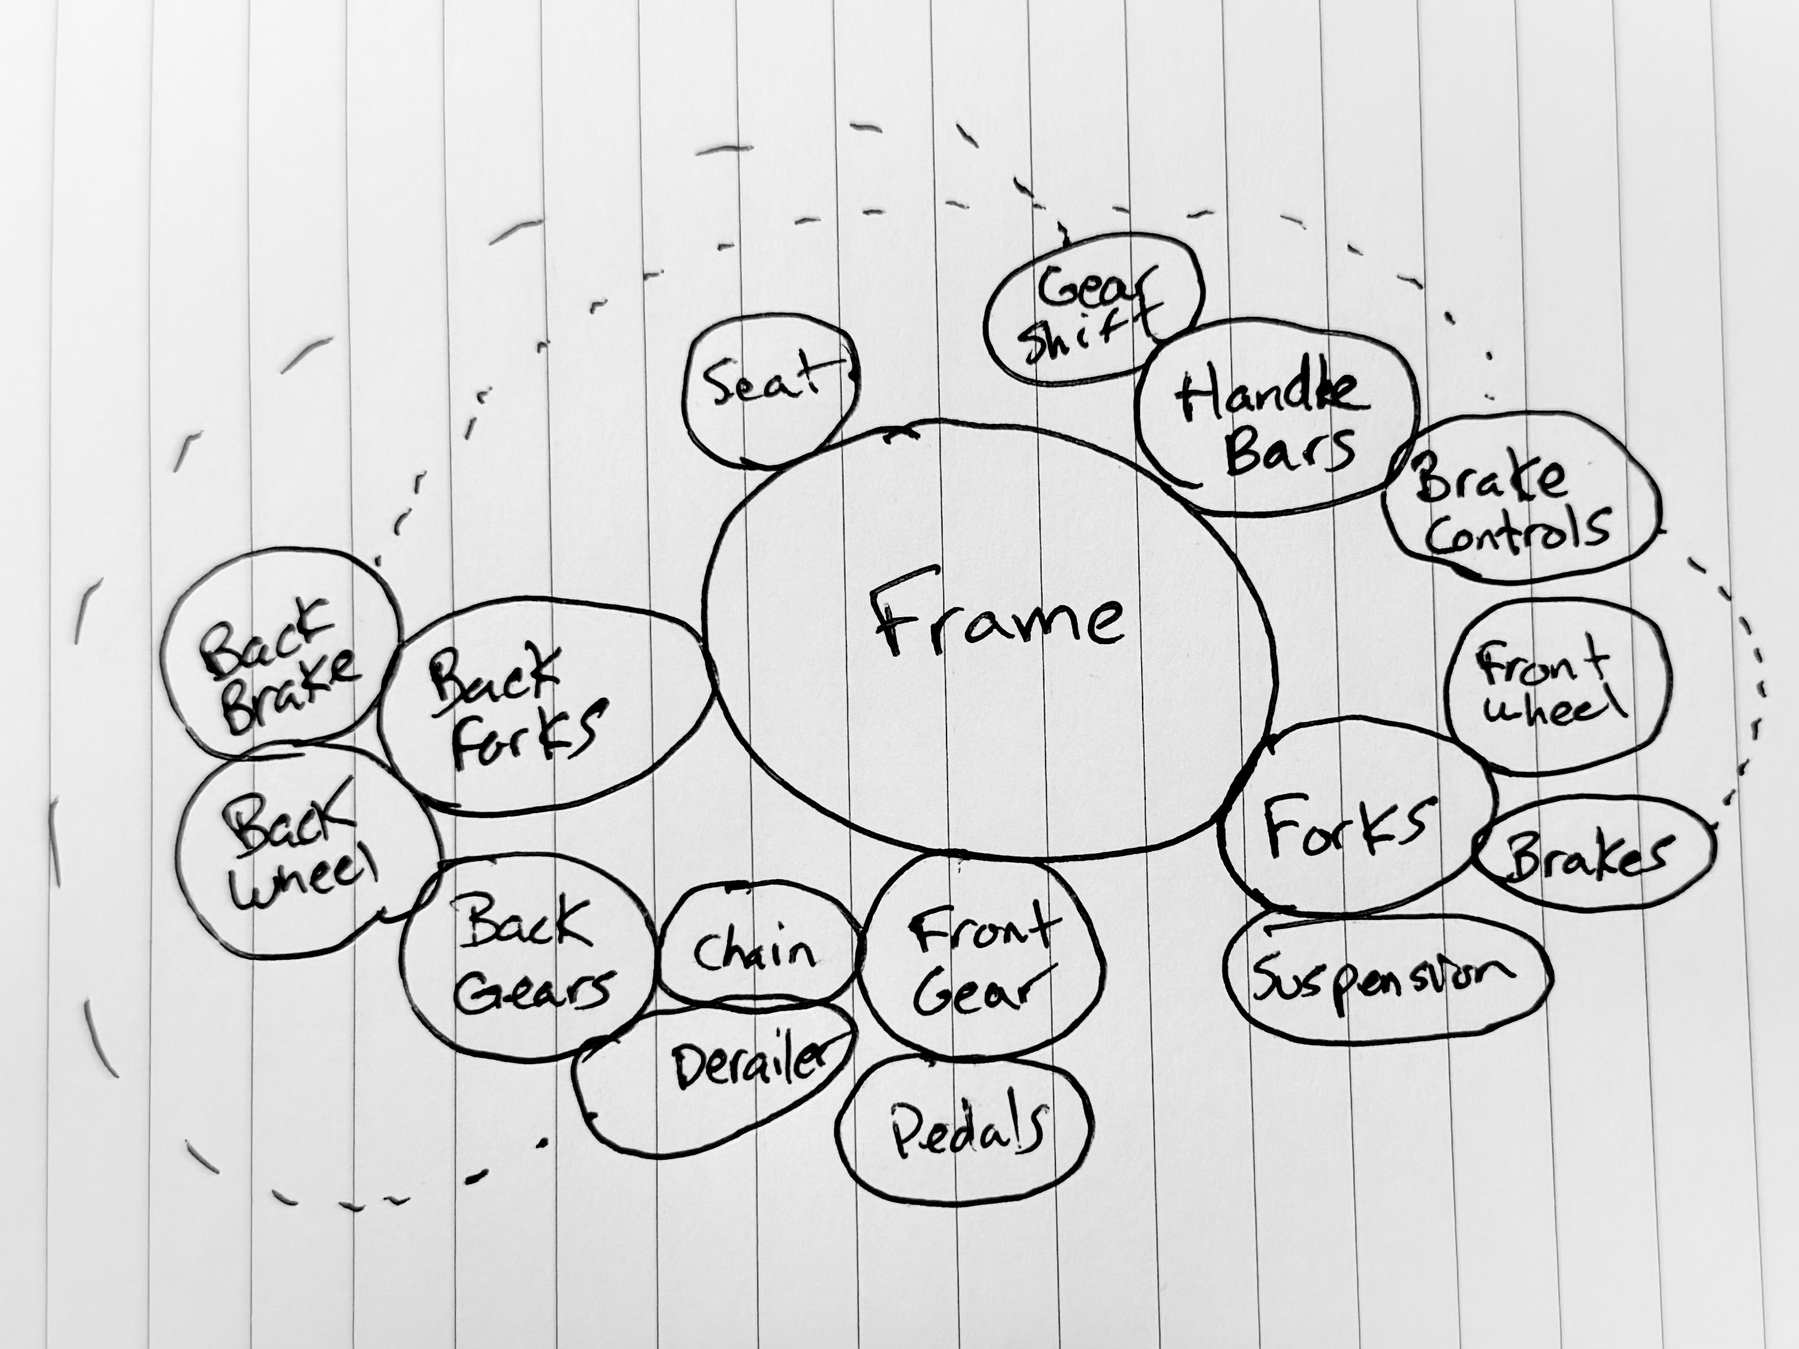 Gear
Shift
Seat
Handle
Bars
Brake
Controls
Frame
Back
Brake
Back
Forks
Front
wheel
Back
wheel
Forks
Brakes
Back
Gears
Chain
Front
Gear
Suspension
Derailer
Pedals